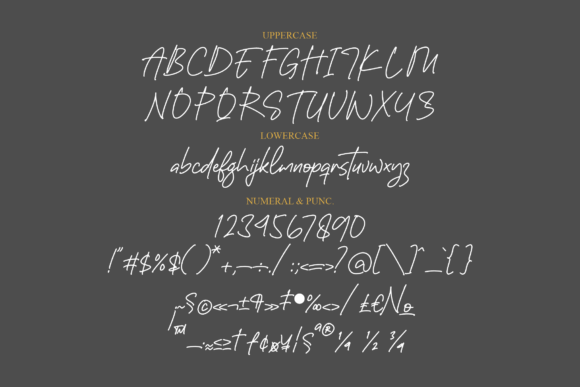 UPPERCASE
ABCDEFGHIJKLM
NOPQRSTUVWXYZ
LOWERCASE
abcdefghijklmnopqrstuvwxyz
NUMERAL & PUNC.
1234567890
!"#$%$()*+,—÷./:;<=>?@[\]^_`{}
¡~§©«¬±¶»‡•‰<>/£€№
™—·≈≤≥†ƒ¢¤¥¦§ªº® ¼ ½ ¾